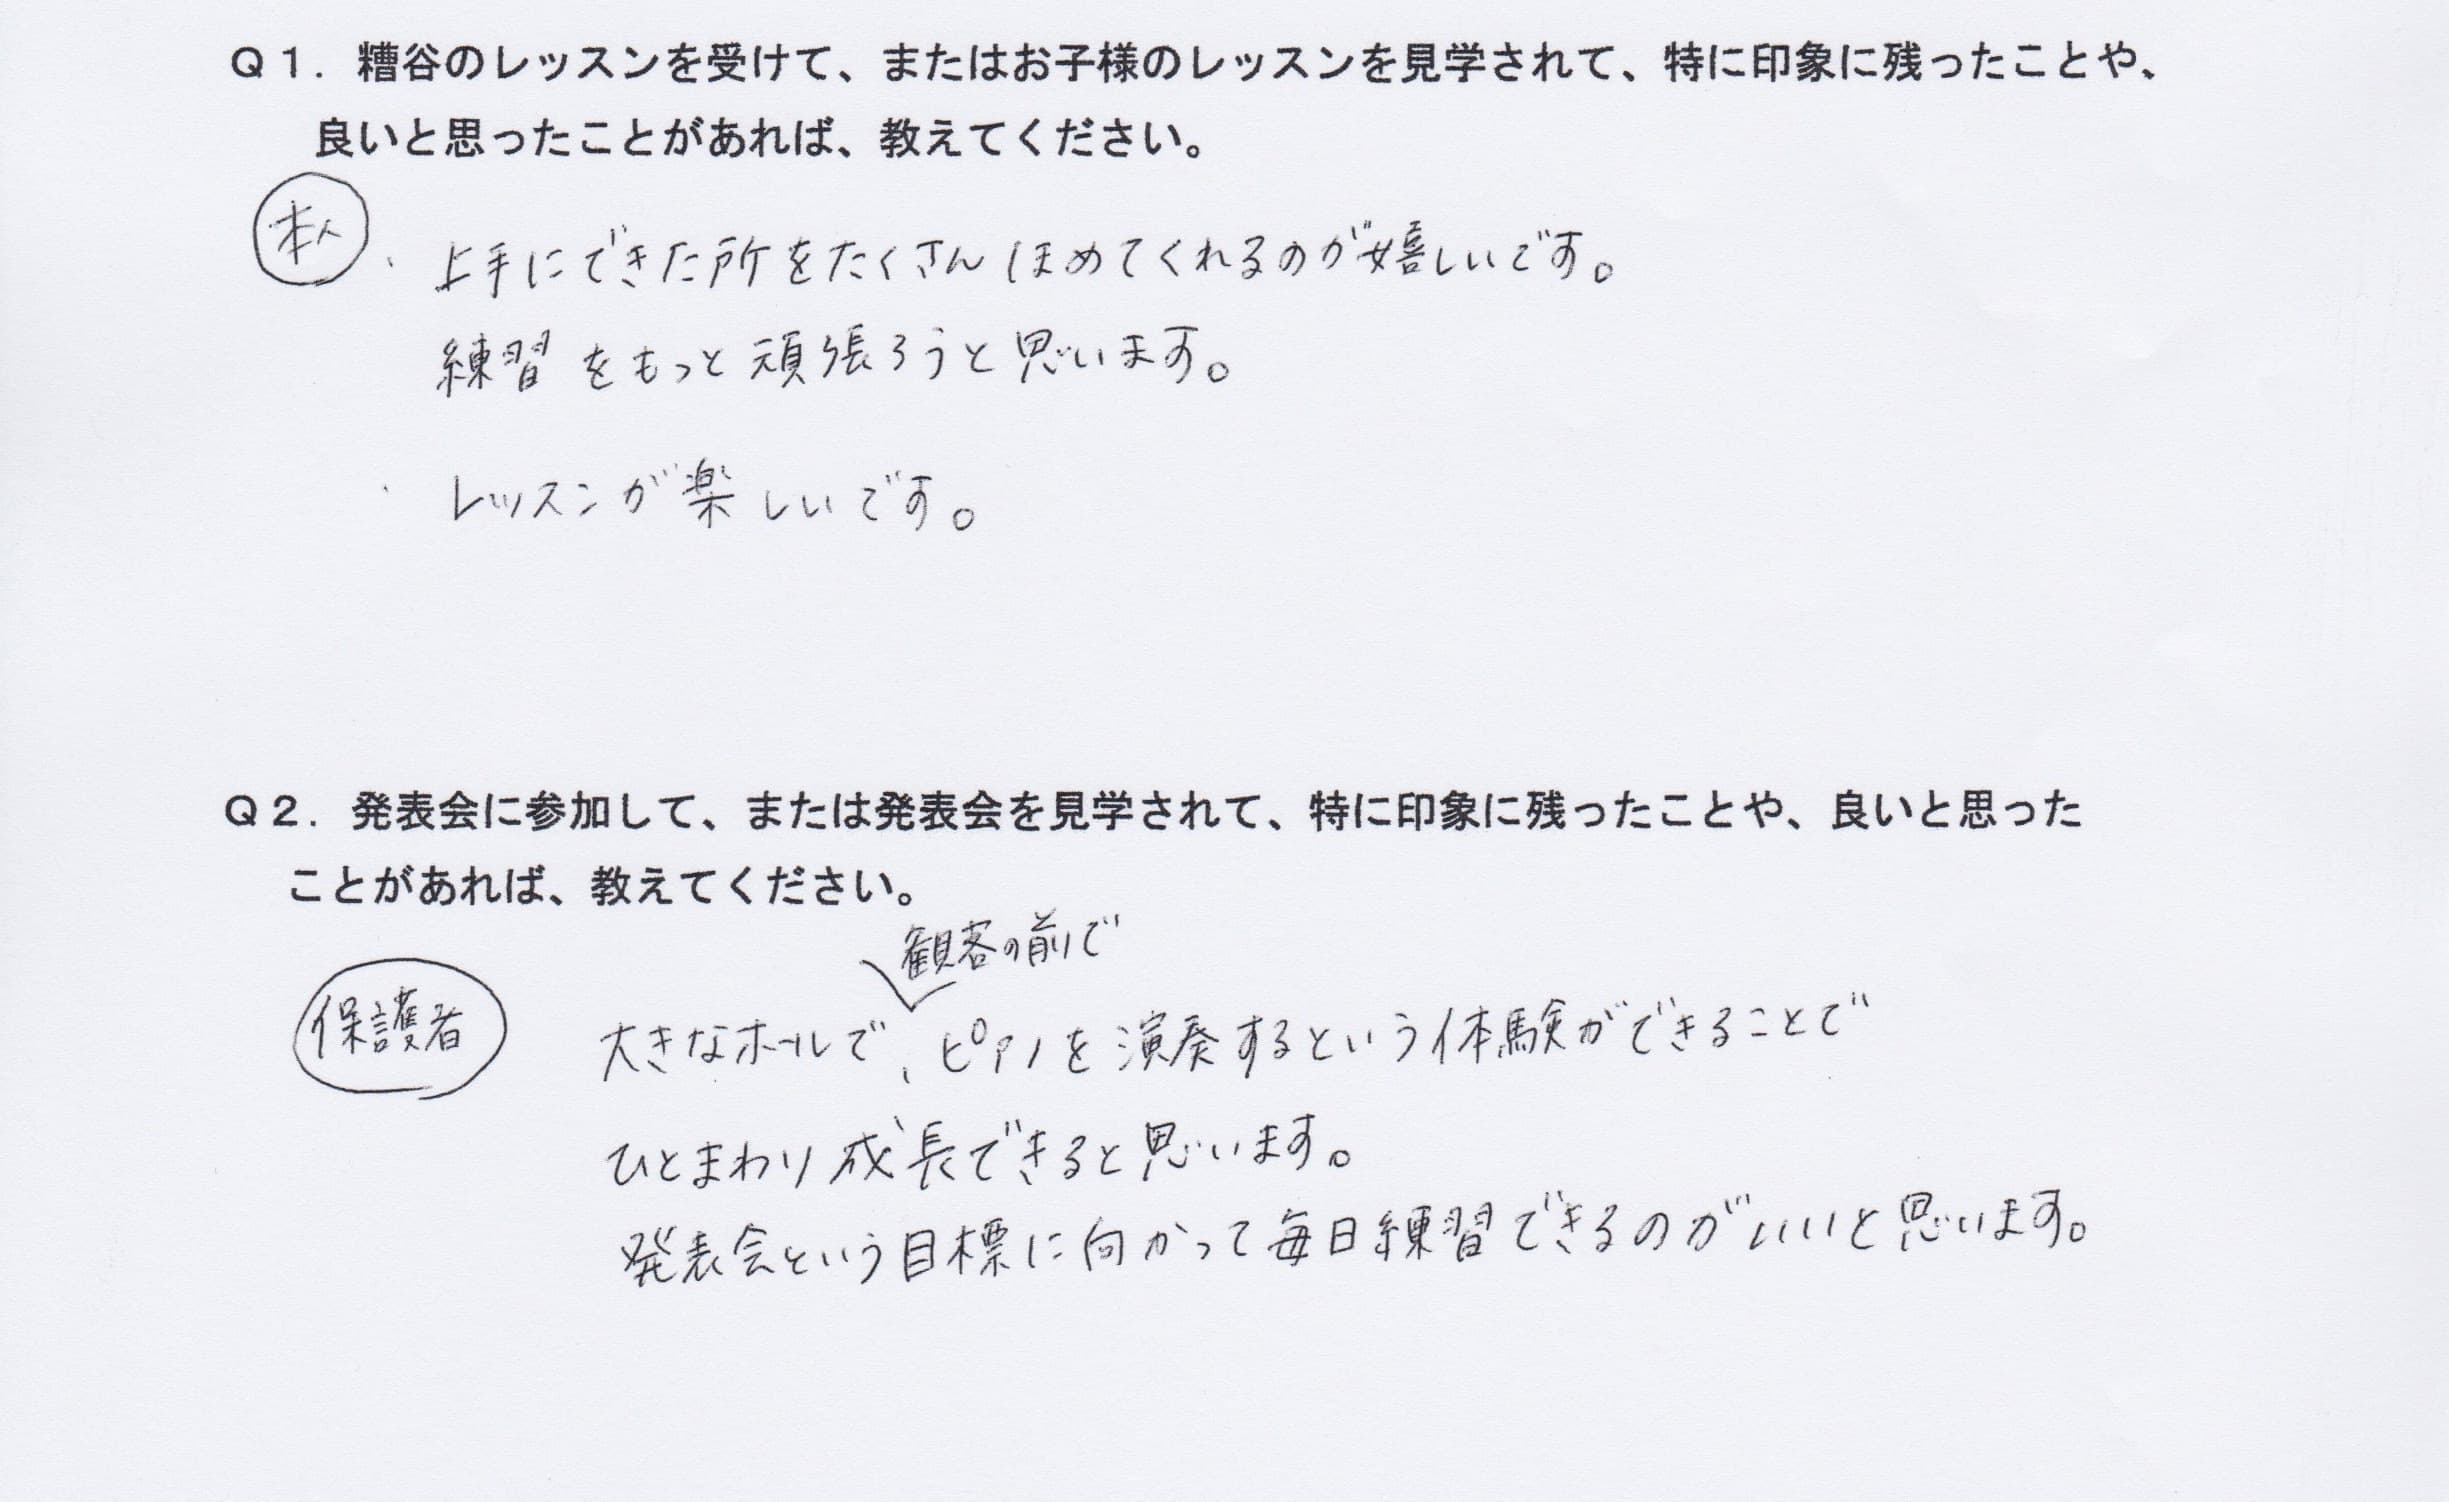 Q1．糟谷のレッスンを受けて、またはお子様のレッスンを見学されて、特に印象に残ったことや、
良いと思ったことがあれば、教えてください。
本人
・上手にできた所をたくさんほめてくれるのが嬉しいです。
練習をもっと頑張ろうと思います。
・レッスンが楽しいです。
Q2．発表会に参加して、または発表会を見学されて、特に印象に残ったことや、良いと思った
ことがあれば、教えてください。
観客の前で
保護者
大きなホールで、ピアノを演奏するという体験ができることで
ひとまわり成長できると思います。
発表会という目標に向かって毎日練習できるのがいいと思います。